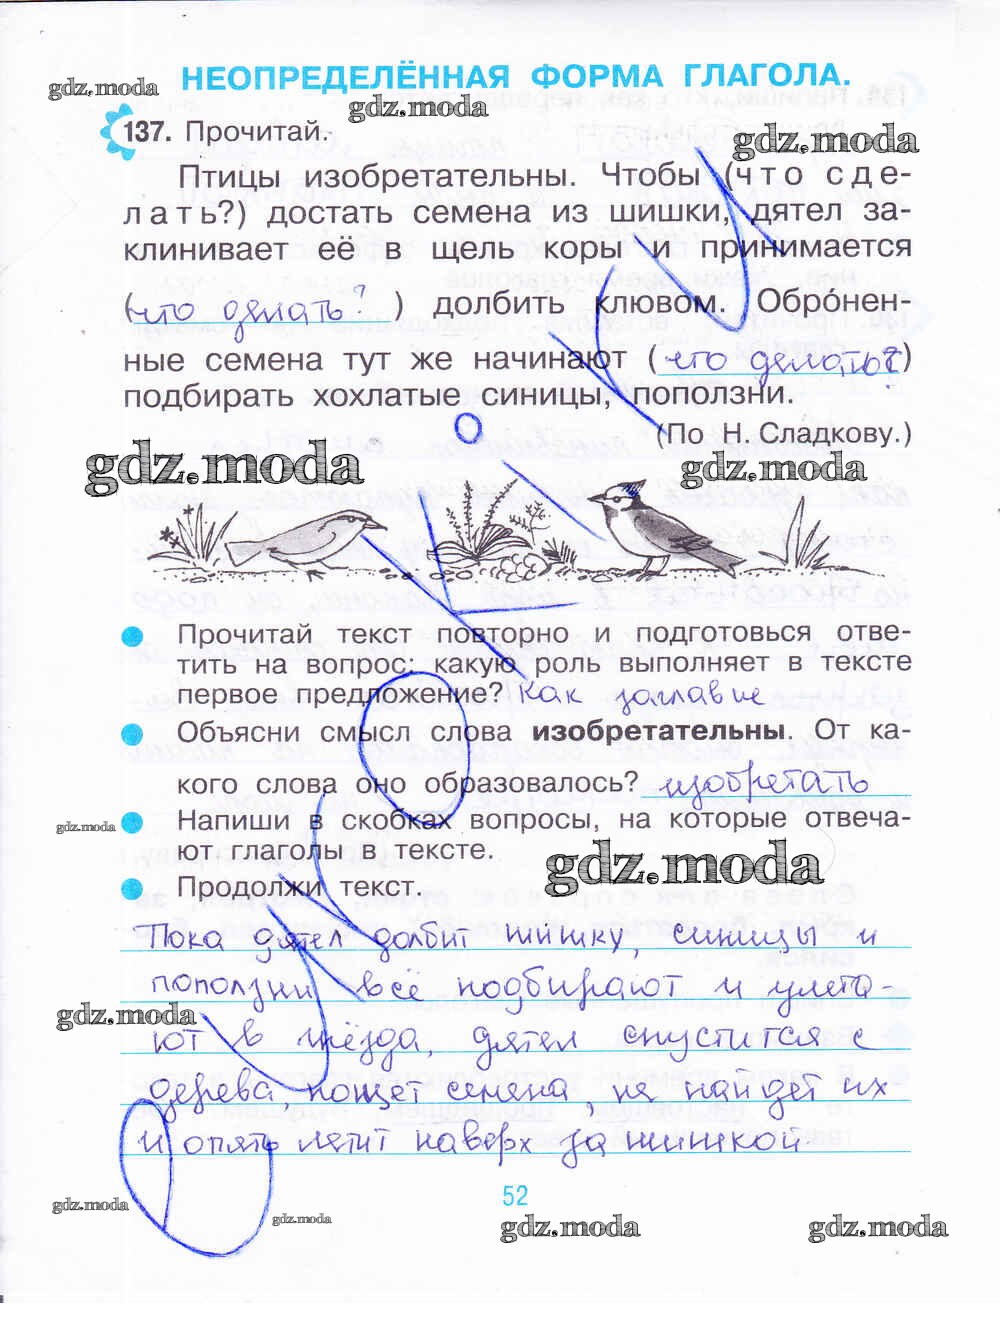 НЕОПРЕДЕЛЁННАЯ ФОРМА ГЛАГОЛА.
gdz.moda
gdz.moda
137. Прочитай.
gdz.moda
Птицы изобретательны. Чтобы (что сде-
лать?) достать семена из шишки, дятел за-
клинивает её в щель коры и принимается
(что делать? ) долбить клювом. Обро́нен-
ные семена тут же начинают (что делать?)
подбирать хохлатые синицы, поползни.
(По Н. Сладкову.)
gdz.moda
gdz.moda
Прочитай текст повторно и подготовься отве-
тить на вопрос: какую роль выполняет в тексте
первое предложение? Как заглавие
Объясни смысл слова изобретательны. От ка-
кого слова оно образовалось? изобретать
gdz.moda
Напиши в скобках вопросы, на которые отвеча-
ют глаголы в тексте.
gdz.moda
Продолжи текст.
Пока дятел долбит шишку, синицы и
поползни всё подбирают и улета-
gdz.moda
ют в гнёзда, дятел спустится с
дерева поищет семена, не найдет их
и опять летит наверх за шишкой
52
gdz.moda
gdz.moda
gdz.moda
gdz.moda